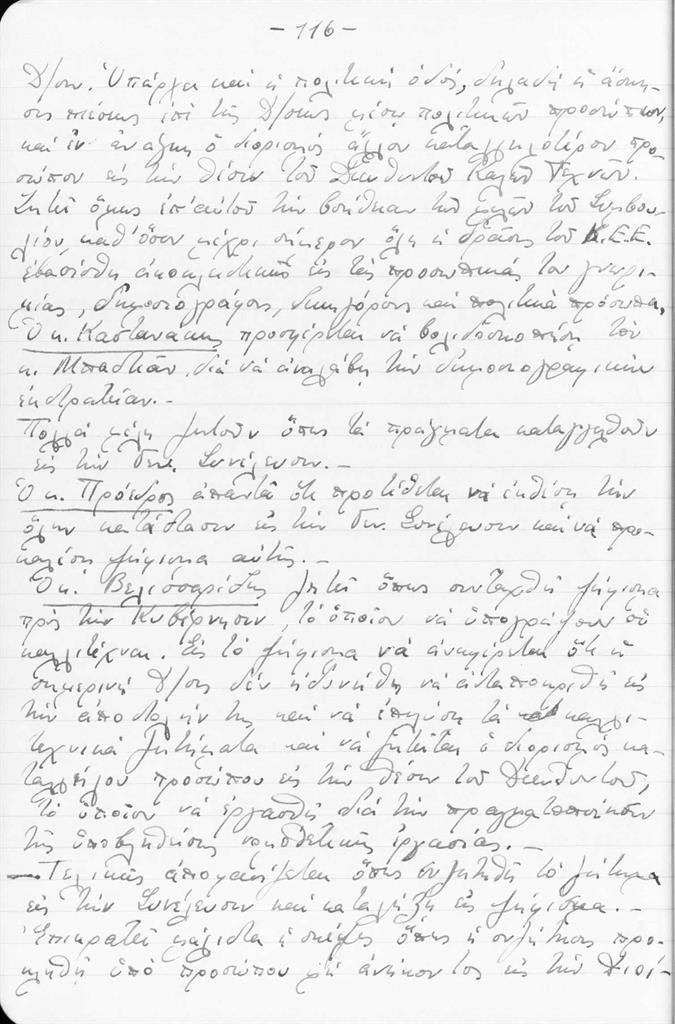 - 116 -
Δ/σιν. Ὑπάρχει καὶ ἡ πολιτικὴ ὁδός, δηλαδὴ ἡ ἄσκη-
σις πιέσεως ἐπὶ τῆς Δ/σεως μέσῳ πολιτικῶν προσώπων,
καὶ ἐν ἀνάγκῃ ὁ διορισμὸς ἄλλου καταλληλοτέρου προ-
σώπου εἰς τὴν θέσιν τοῦ Διευθυντοῦ Καλῶν Τεχνῶν.
Ζητεῖ ὅμως ἐπ' αὐτοῦ τὴν βοήθειαν τῶν μελῶν τοῦ Συμβου-
λίου, καθ' ὅσον μέχρι σήμερον ὅλη ἡ δρᾶσις τοῦ Κ.Ε.Ε.
ἐβασίσθη ἀποκλειστικῶς εἰς τὰς προσωπικάς του γνωρι-
μίας, δημοσιογράφους, δικηγόρους καὶ πολιτικὰ πρόσωπα.
Ὁ κ. Καστανάκης προσφέρεται νὰ βολιδοσκοπήσῃ τὸν
κ. Μπαστιᾶν διὰ νὰ ἀναλάβῃ τὴν δημοσιογραφικὴν
ἐκστρατείαν. -
Πολλὰ μέλη ζητοῦν ὅπως τὰ πράγματα καταγγελθοῦν
εἰς τὴν Γεν. Συνέλευσιν. -
Ὁ κ. Πρόεδρος ἀπαντᾶ ὅτι προτίθεται νὰ ἐκθέσῃ τὴν
ὅλην κατάστασιν εἰς τὴν Γεν. Συνέλευσιν καὶ νὰ προ-
καλέσῃ ψήφισμα αὐτῆς. -
Ὁ κ. Βελισσαρίδης ζητεῖ ὅπως συνταχθῇ ψήφισμα
πρὸς τὴν Κυβέρνησιν, τὸ ὁποῖον νὰ ὑπογράψουν οἱ
καλλιτέχναι. Εἰς τὸ ψήφισμα νὰ ἀναφέρεται ὅτι ἡ
σημερινὴ Δ/σις δὲν ἠδυνήθη νὰ ἀνταποκριθῇ εἰς
τὴν ἀποστολήν της καὶ νὰ ἐπιλύσῃ τὰ καλλι-
τεχνικὰ ζητήματα καὶ νὰ ζητεῖται ὁ διορισμὸς κα-
ταλλήλου προσώπου εἰς τὴν θέσιν τοῦ Διευθυντοῦ,
τὸ ὁποῖον νὰ ἐργασθῇ διὰ τὴν πραγματοποίησιν
τῆς ὑποβληθείσης νομοθετικῆς ἐργασίας. -
- Τελικῶς ἀποφασίζεται ὅπως συζητηθῇ τὸ ζήτημα
εἰς τὴν Συνέλευσιν καὶ καταλήξῃ εἰς ψήφισμα. -
Ἐπικρατεῖ μάλιστα ἡ σκέψις ὅπως ἡ συζήτησις προ-
κληθῇ ὑπὸ προσώπου μὴ ἀνήκοντος εἰς τὴν Διοί-